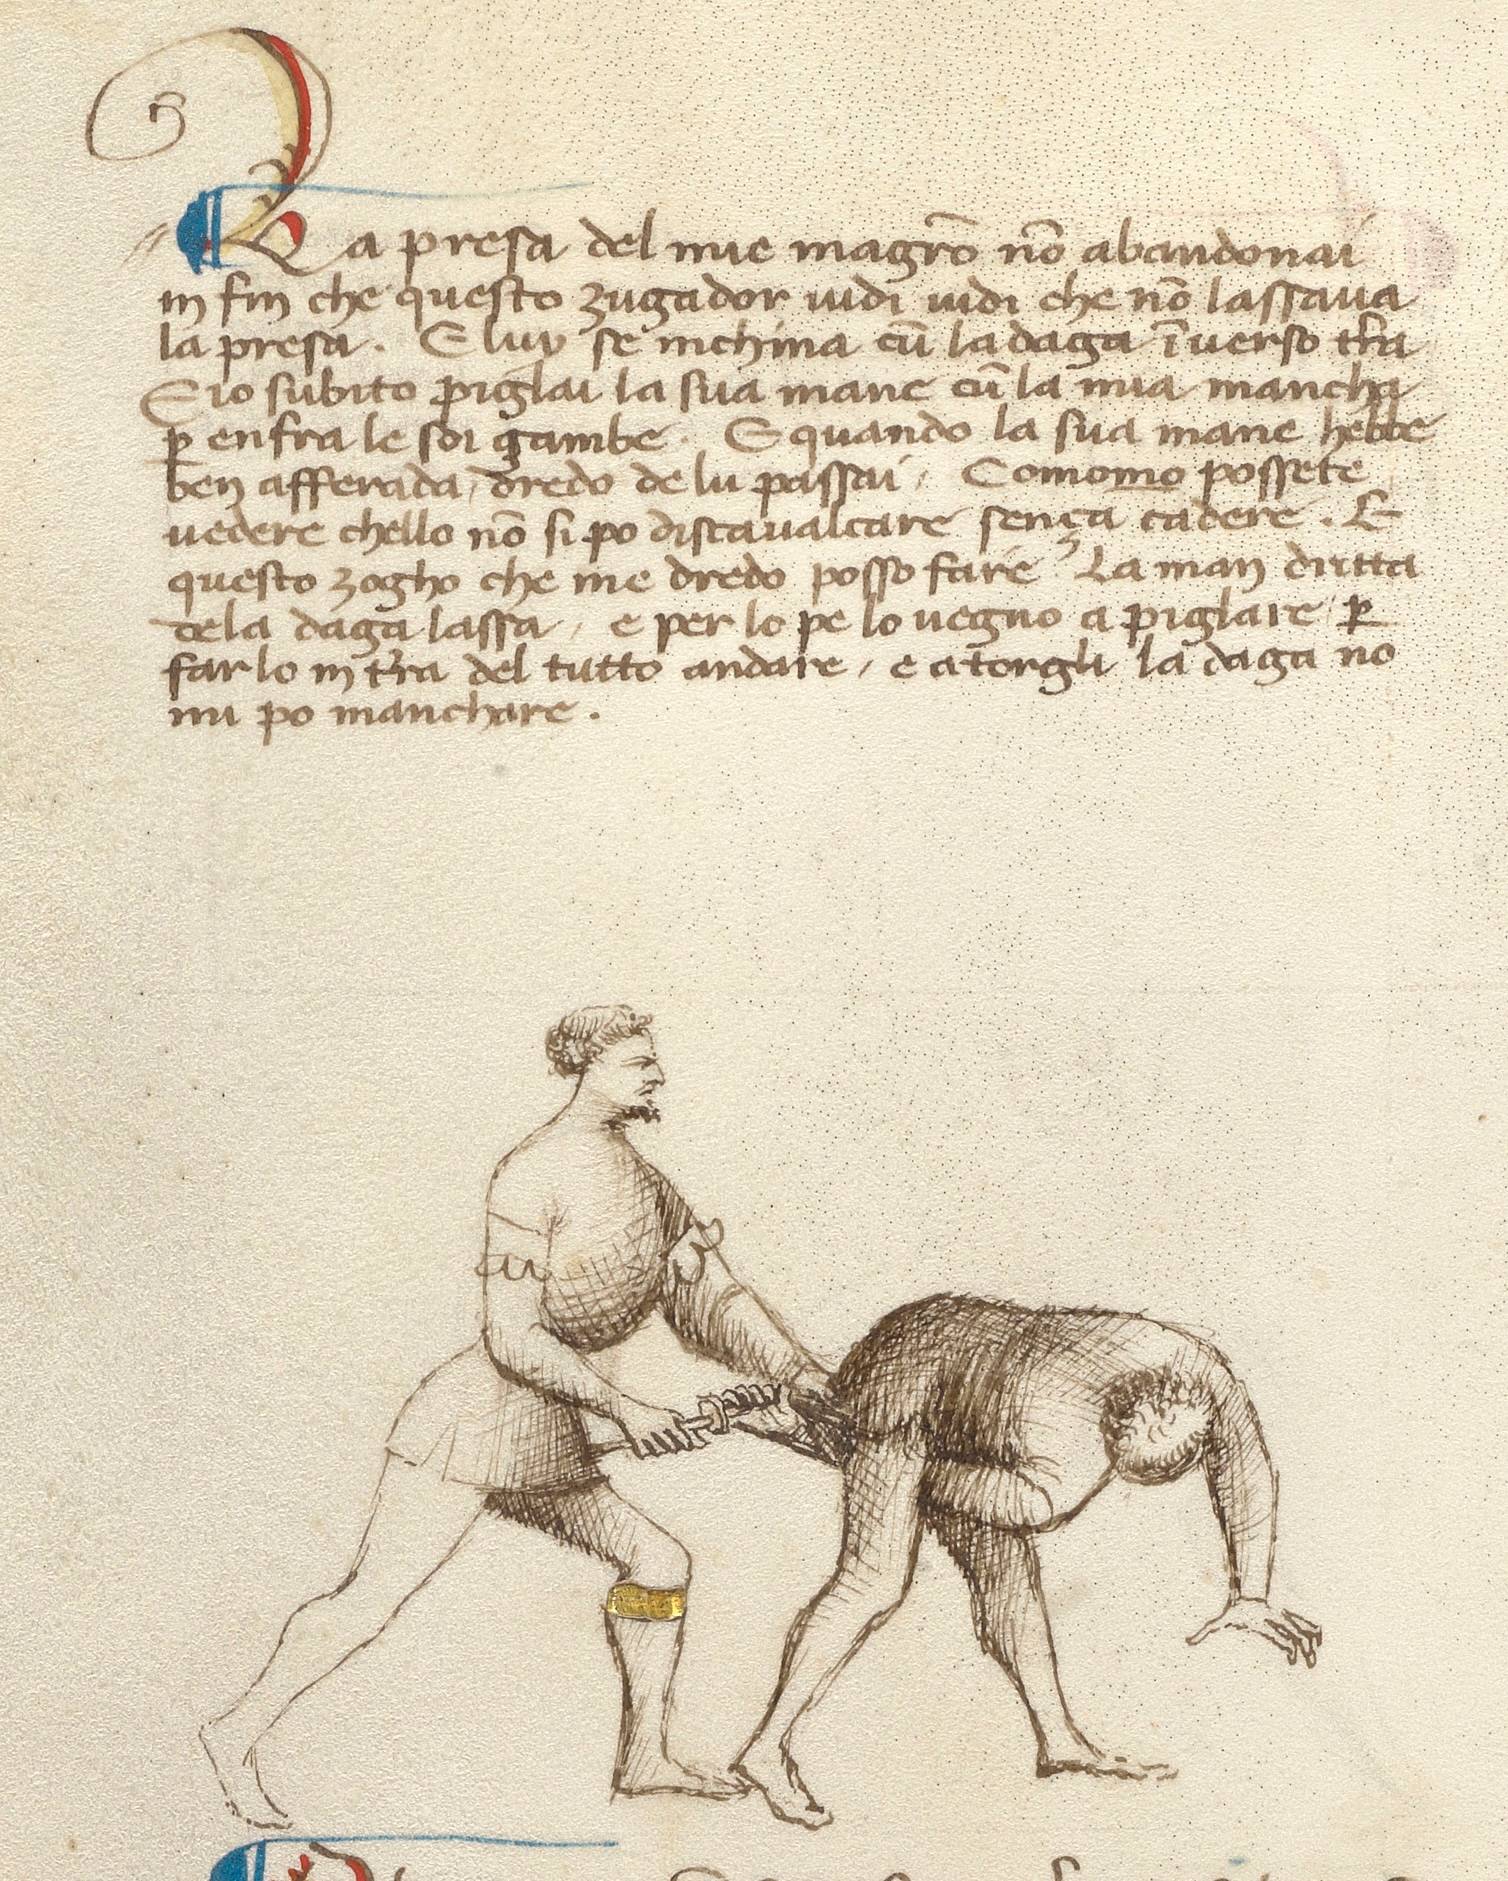 La presa del mie magrō nō abandonai
in fin che questo zugador uidi uidi che nō lassaua
la presa. E luy se inchina cū la daga īuerso t̄ra
E io subito piglai la sua mane cū la mia mancha
p̱ enfra le soi gambe. E quando la sua mane hebbe
ben afferada, dredo de lu passai, Como mo possete
uedere chello nō si po discaualcare sença cadere. E
questo zogho che me dredo posso fare La man dritta
de la daga lassa, e per lo pe lo uegno a piglare p̱
farlo in t̄ra del tutto andare, e a torgli la daga no
mi po manchare.